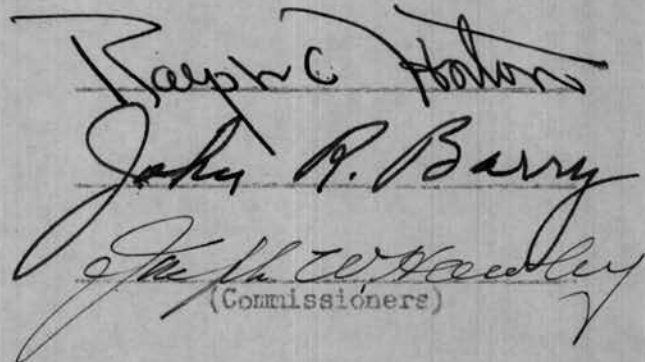 Ralph C Horton
John R. Barry
Joseph W Hawley
(Commissioners)